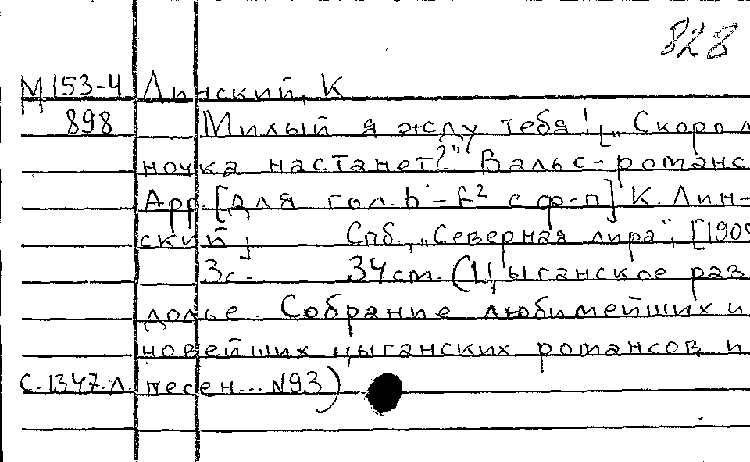 828
М 153-4 Линский, К
898 Милый я жду тебя! [„Скоро л
ночка настанет?"] Вальс-романс
Арр. [для гол. h - f² с ф-п] К. Лин-
ский; Спб., „Северная лира", [1909
3с. 34 cm. (Цыганское раз
долье. Собрание любимейших и
новейших цыганских романсов и
С.1347.Л. песен... №93)